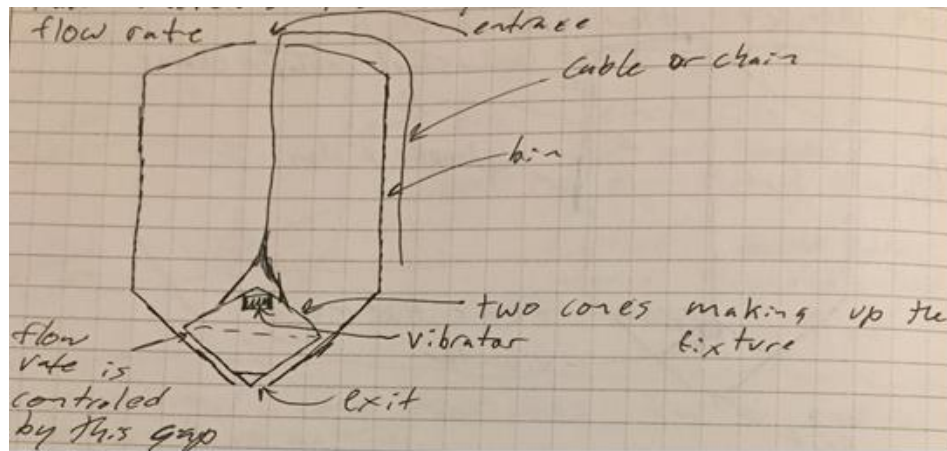 flow rate
entrace
Cable or chain
bin
two cones making up the
fixture
vibrator
flow
rate is
controled
by this gap
exit